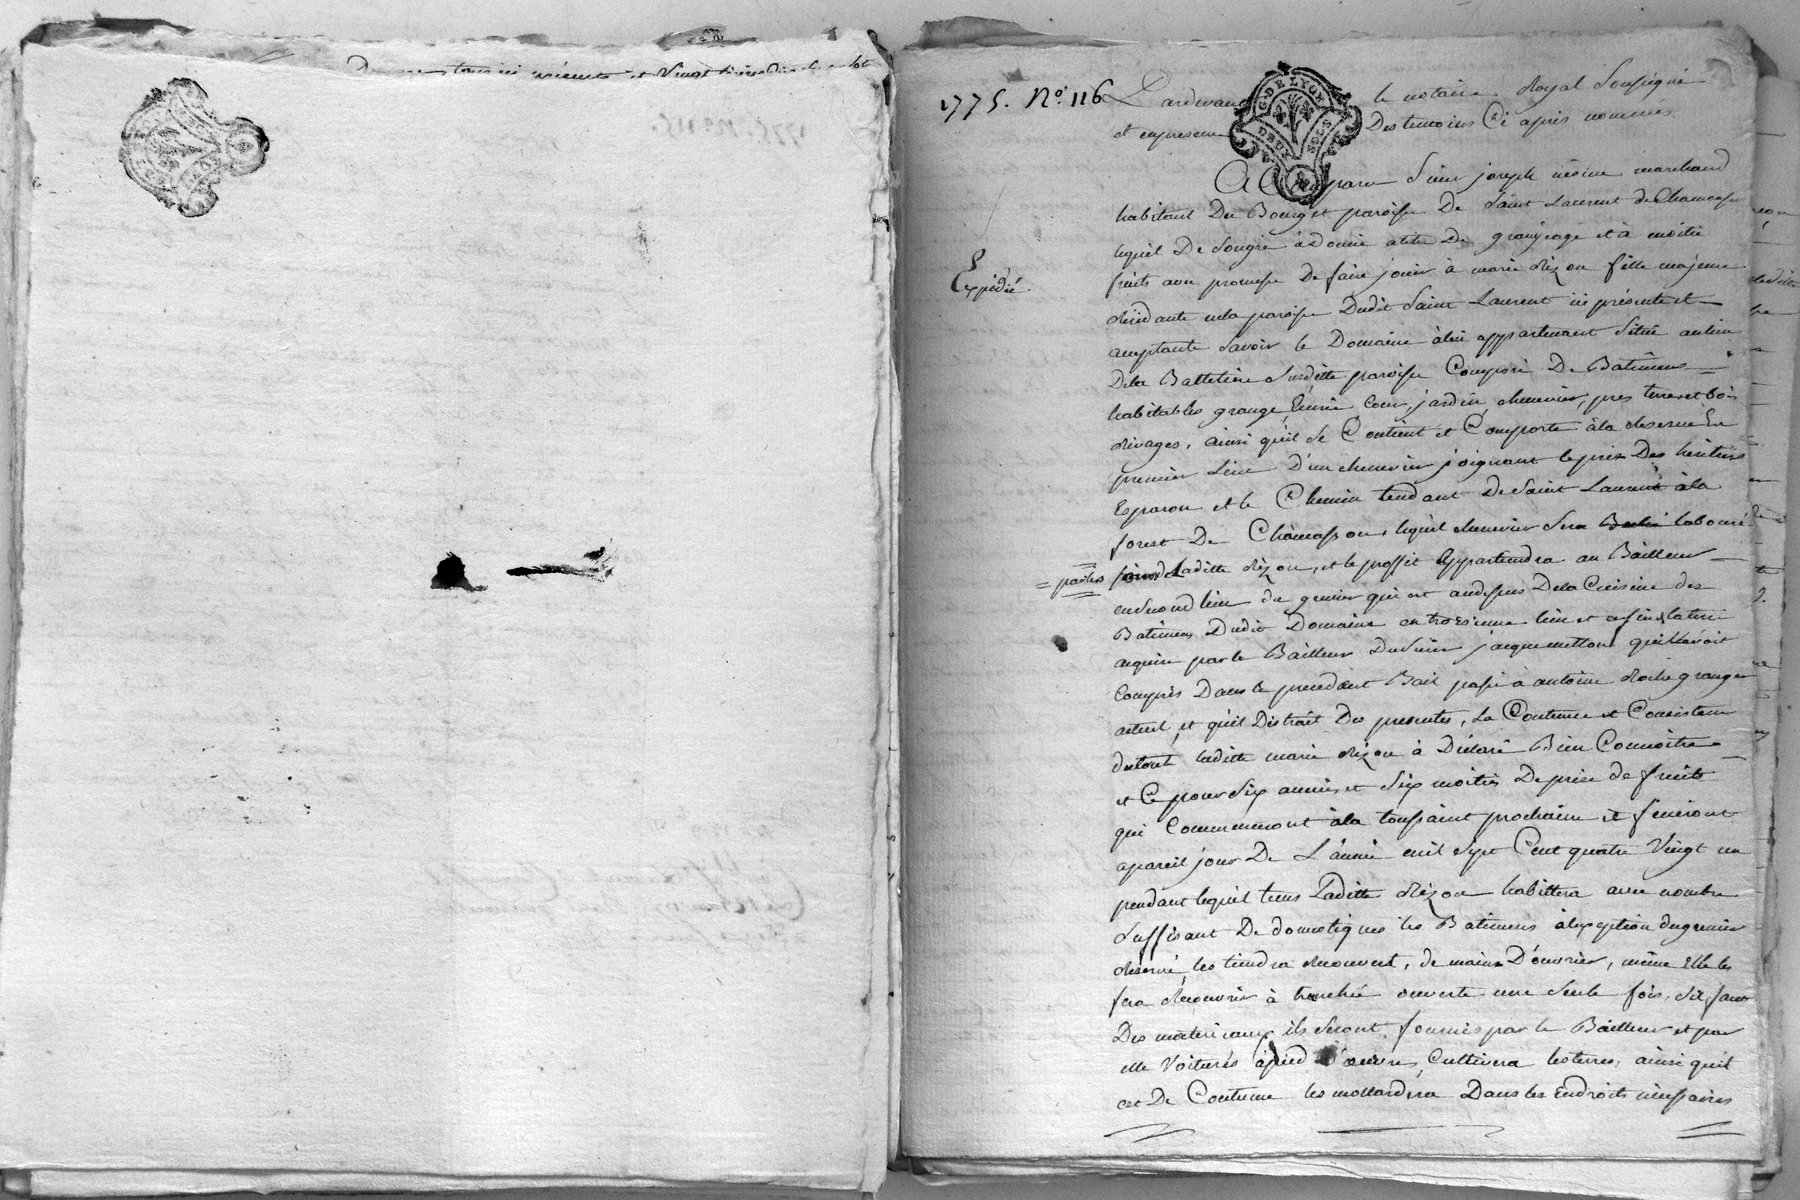 1775. No. 116
Pardevant le notaire Royal Soussigné
et en presence Des temoins Ci après nommés
G. DE LYON
DEUX SOLS
A Comparu Sieur joseph marchand
habitant Du Bourg et paroisse De Saint Laurent de Chamousset
lequel De Son gré à donné à titre De grangeage et à moitié
Expédié.
fruits avec promesse De faire jouir à marie Rézon fille majeure
résidante en la paroisse Dudit Saint Laurent ici présente et
acceptante Savoir le Domaine à lui appartenant Situé au lieu
De la Battetiere Susditte paroisse Composé De Batimens
habitables grange Ecurie Cour, jardin, chenevier, prés terres et bois
rivages, ainsi qu'il Se Contient et Comporte à la reserve En
premier Lieu D'un chenevier joignant le prés Des héritiers
Esparon et le Chemin tendant De Saint Laurent à la
forest De Chamosson, lequel chenevier Sera labouré
par les
Laditte Rézon, et le proffit Appartendra au Bailleur
en second lieu du grenier qui est au dessus De la Cuisine des
Batimens Dudit Domaine en troisieme lieu et
acquise par le Bailleur Du Sieur jacquemetton qu'il avoit
Compris Dans le precedent Bail passé à antoine Roche granger
actuel, et qu'il Distrait Des presentes, La Contenue et Consistance
du tout laditte marie Rézon à Déclaré Bien Connoitre
et Ce pour Six années et Six moitiés De prise de fruits
qui Commenceront à la toussaint prochaine et finiront
a pareil jour De L'année mil Sept Cent quatre Vingt un
pendant lequel tems Laditte Rézon habittera avec nombre
Suffisant De domestiques les Batimens à l'exception du grenier
reservé, les tiendra recouvert, de main D'ouvrier, même Elle les
fera recouvrir à tranchée ouverte une Seule fois, S'il faut
Des materieaux ils Seront fournis par le Bailleur et par
elle Voiturés à pied D'œuvres, Cultivera les terres, ainsi qu'il
est De Coutume les mottardera Dans les Endroits nécessaires